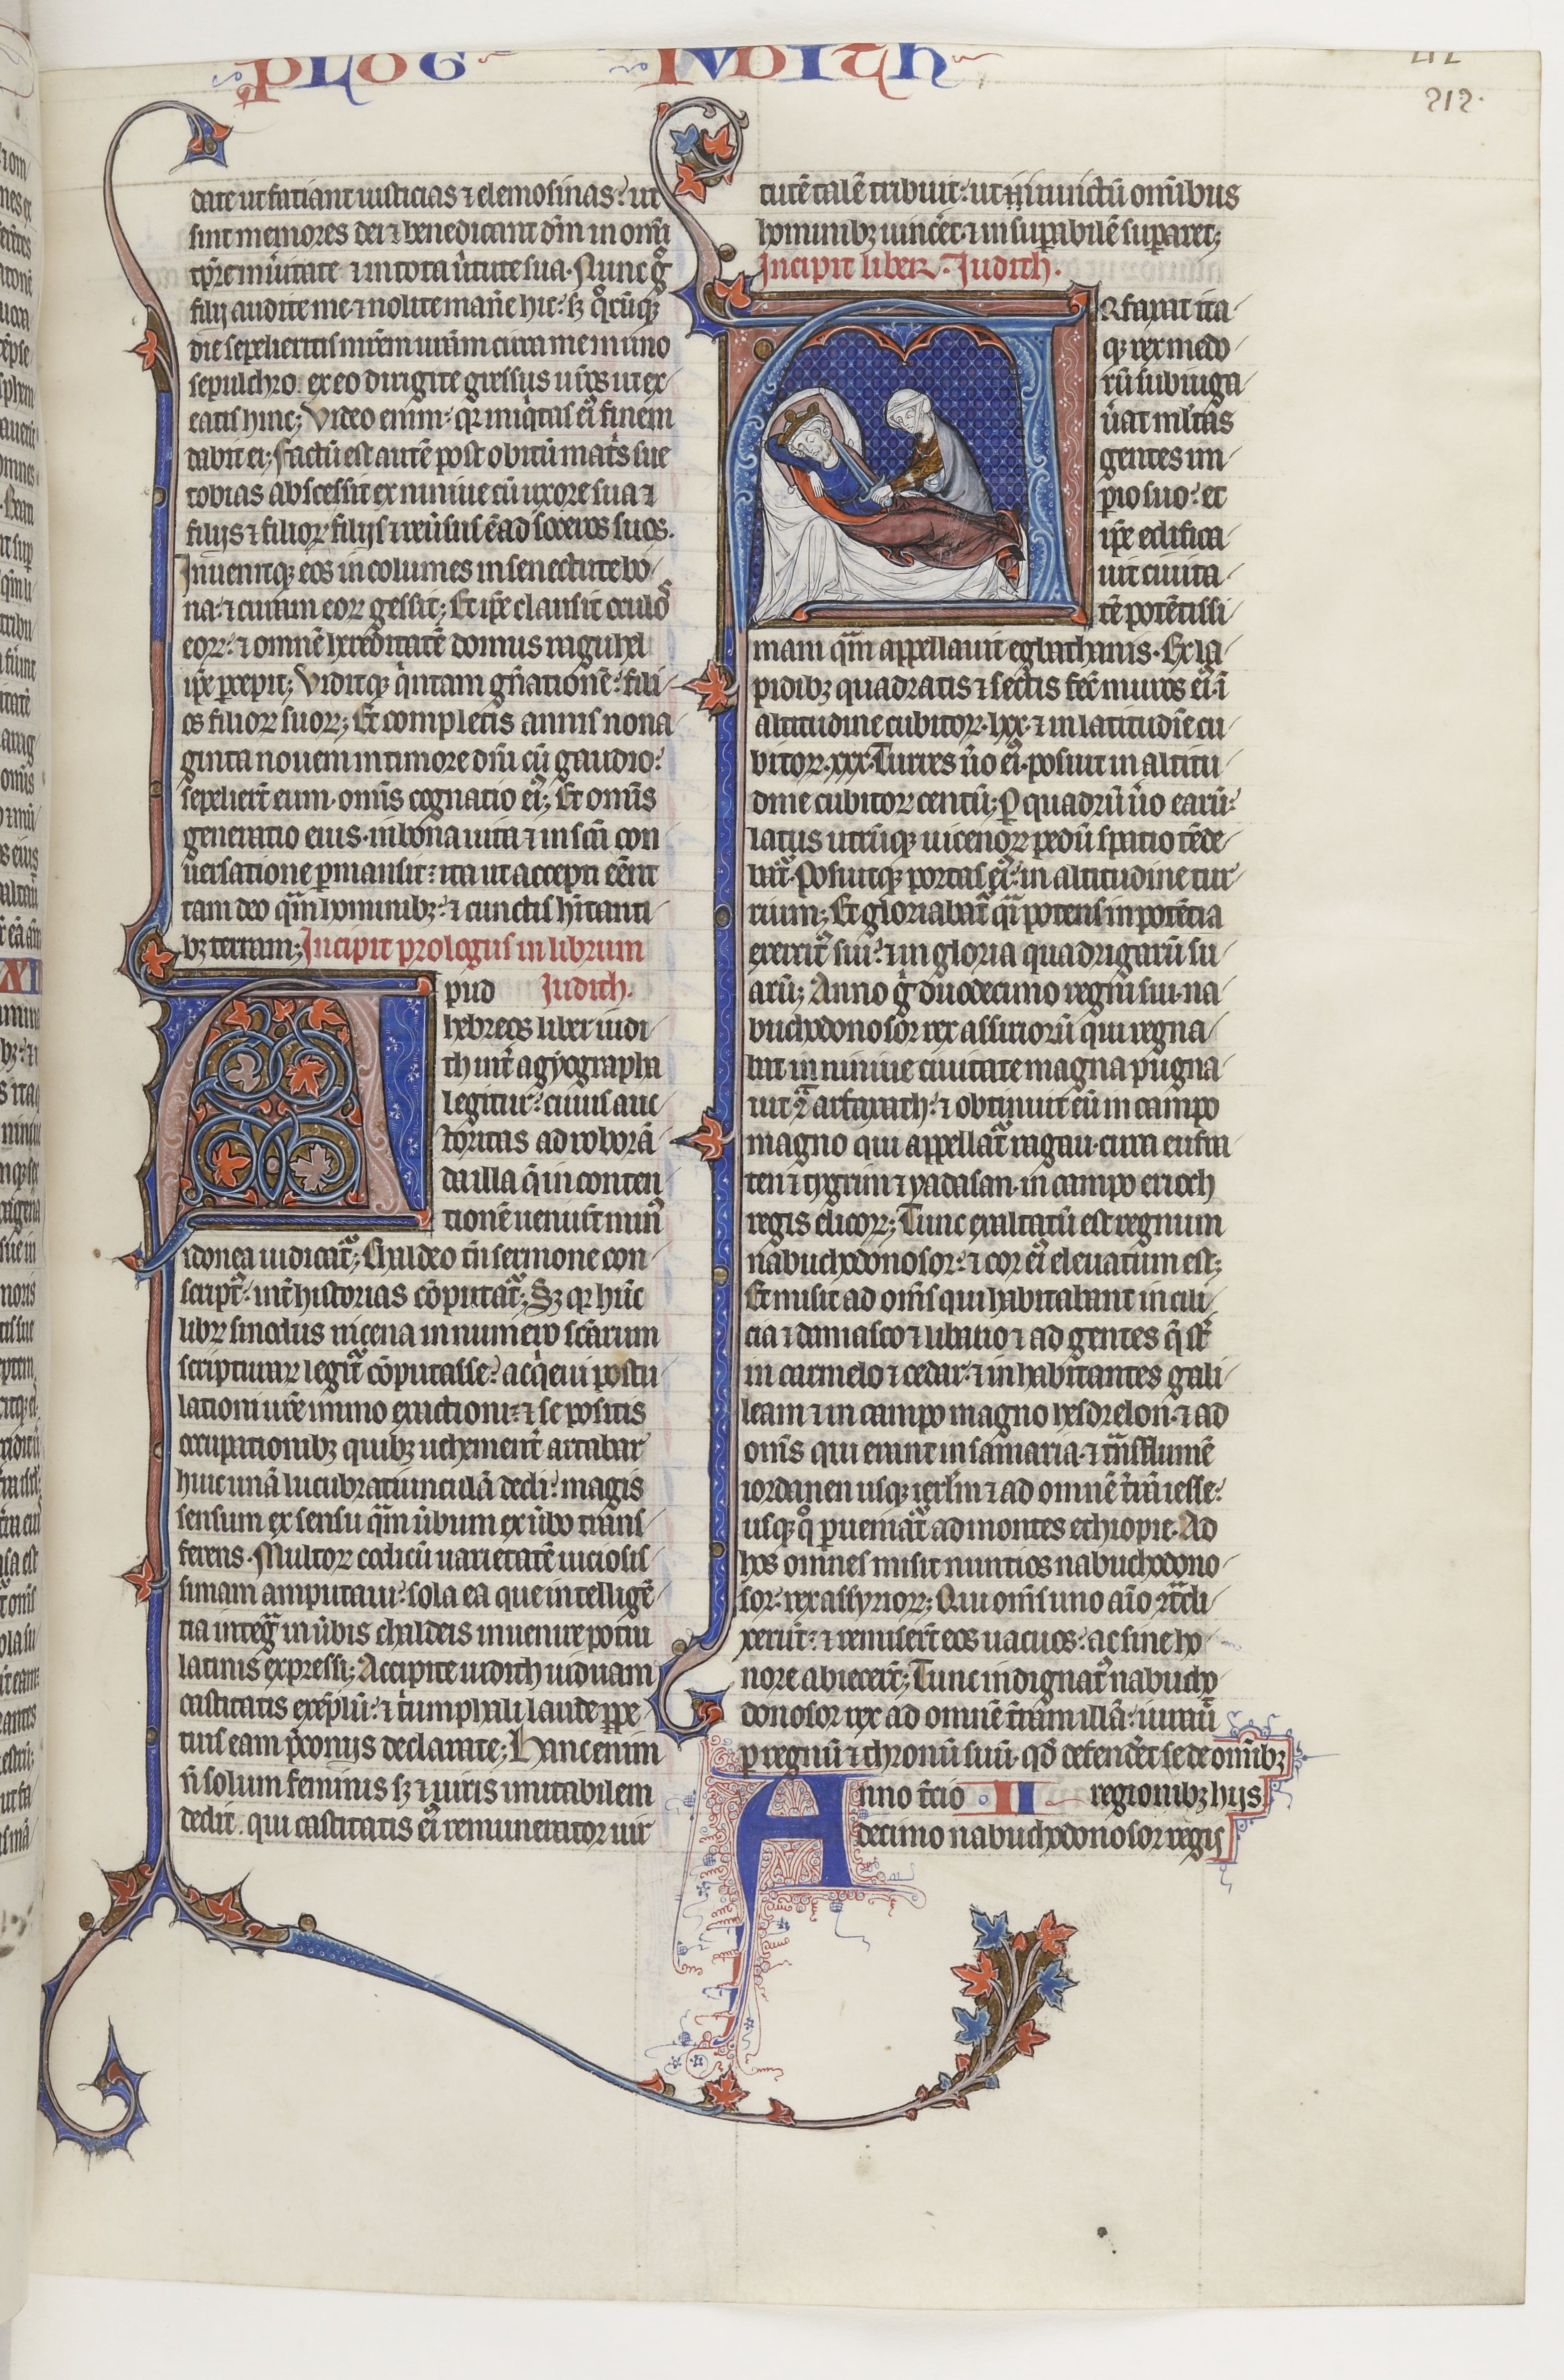 PLOG IVDITh
212.
date ut fatiant iusticias ⁊ elemosinas: ut
sint memores dei ⁊ benedicant dm̄ in omni
tp̄re in ueritate ⁊ in tota ũtute sua. Nunc gͦ
filij audite me ⁊ nolite mane hic: sꝫ qͦcūqꝫ
die sepelieritis mrēm uram circa me in uno
sepulchro. ex eo dirigite gressus uros ut ex
eatis hinc; Video enim: qꝛ iniqͥtas eiꝰ finem
dabit ei; factū est autē post obitū matͥs sue
tobias abscessit ex niniue cū uxore sua ⁊
filijs ⁊ filioꝝ filijs ⁊ reũsus ē ad soceros suos.
Inuenitqꝫ eos incolumes in senectute bo
na: ⁊ curam eoꝝ gessit; Et ipe clausit oculos
eoꝝ: ⁊ omnē hereditatē domus raguhel
ipe percepit; Viditqꝫ qͥntam gn̄ationē: fili
os filioꝝ suoꝝ; Et completis annis nona
ginta nouem in timore dn̄i cū gaudio:
sepelierт̄ eum. omīs cognatio eiꝰ; Et omīs
generatio eius. in bona uita ⁊ in scā con
uersatione ꝑmansit: ita ut accepti eēnt
tam deo qͣm hominibꝫ: ⁊ cunctis hītanti
bꝫ terram; Incipit prologus in librum
Apud Iudith.
hebreos liber iudi
th int̄ agyographa
legitur: cuius auc
toritas ad roborā
da illa q̄ in conten
tionē ueniūt minꝰ
idonea iudicatͬ; Chaldeo tn̄ sermone con
scriptꝰ: int̄ historias cōputatͬ; Sꝫ qꝛ hūc
libꝝ sinodus nicena in numero scārum
scripturaꝝ legitͬ cōputasse: acqͥeui postu
lationi ur̄e immo exactioni: ⁊ sepositis
occupationibꝫ quibꝫ uehement̄ artabar
huic unā lucubratiunculā dedi: magis
sensum ex sensu qͣm ũbum ex ũbo trans
ferens. Multoꝝ codicū uarietatē uiciosis
simam amputaui: sola ea que intelligē
tia integͣ in ũbis chaldeis inuenire potui
latinis expressi; Accipite iudith uiduam
castitatis exēplū: ⁊ tͥumphali laude ꝑpe
tuis eam p̄conijs declarate; Hanc enim
n̄ solum feminis sꝫ ⁊ uiris imitabilem
dedit. qui castitatis eiꝰ remunerator uir
tutē talē tribuit: ut inuictū omībus
hominibꝫ uincēt: ⁊ insuꝑabilē suꝑaret;
Incipit liber. Iudith.
Arfaxat ita
qꝫ rex medo
rū subiuga
ũat multas
gentes im
ꝑio suo: et
ipe edifica
uit ciuita
tē potētissi
mam qͣm appellauit egbathanis. Ex la
pidibꝫ quadratis ⁊ sectis fec̄ muros eiꝰ. ī
altitudine cubitoꝝ. lxx. ⁊ in latitudīe cu
bitoꝝ. xxx. Turres ũo eiꝰ. posuit in altitu
dine cubitoꝝ centū; Ꝑ quadrū ũo earū:
latus utrūqꝫ uicenoꝝ pedū spatio tēde
batͬ. Posuitqꝫ portas eiꝰ: in altitudine tur
rium; Et gloriabatͬ qͣi potens in potētia
exercitꝰ sui: ⁊ in gloria quadrigarū su
arū; Anno gͦ duodecimo regni sui. na
buchodonosor rex assiriorū qui regna
bat in niniue ciuitate magna pugna
uit ꝯͣ arfaxath: ⁊ obtinuit eū in campo
magno qui appellatͬ ragau. circa eufra
ten ⁊ tygrim ⁊ yadasan. in campo erioch
regis elicoꝝ; Tunc exaltatū est regnum
nabuchodonosor: ⁊ cor eiꝰ eleuatum est;
Et misit ad omīs qui habitabant in cili
cia ⁊ damasco ⁊ libano ⁊ ad gentes q̄ st̄
in carmelo ⁊ cedar: ⁊ inhabitantes gali
leam ⁊ in campo magno hesdrelon. ⁊ ad
omīs qui erant in samaria. ⁊ trͣns flumē
iordanen usqꝫ ierlm̄ ⁊ ad omnē t̄rā iesse:
usqꝫ qͦ ꝑueniatͬ ad montes ethiopie. Ad
hos omnes misit nuntios nabuchodono
sor: rex assyrioꝝ; Qui omīs uno aīo ꝯtͣdi
xerūt: ⁊ remiserт̄ eos uacuos: ac sine ho
nore abiecerт̄; Tunc indignatꝰ nabucho
donosor rex ad omnē t̄ram illā: iurauit
ꝑ regnū ⁊ thronū suū. qd̄ defendēt se de omībꝫ
II regionibꝫ hijs
Anno t̄cio
decimo nabuchodonosor regis